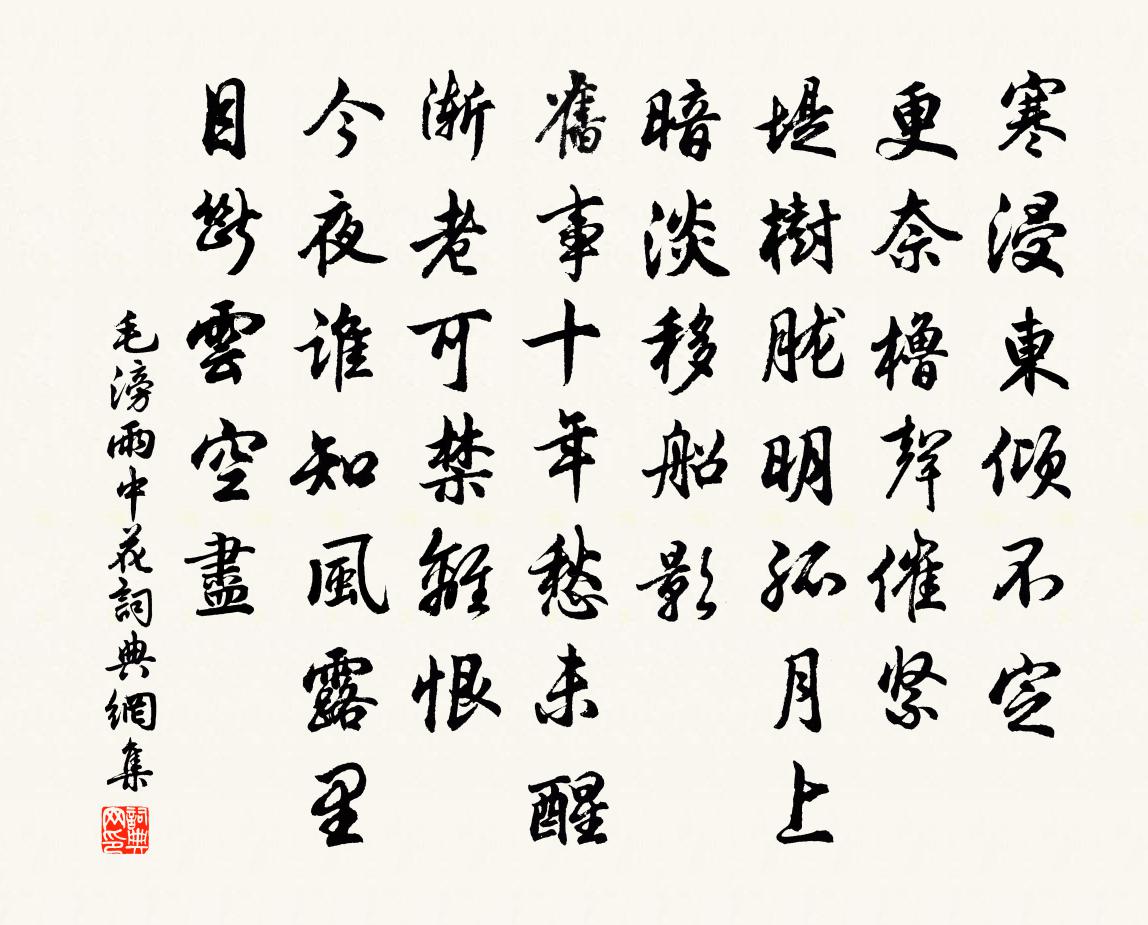 寒浸東傾不定
更奈櫓聲催緊
堤樹朧明孤月上
暗淡移船影
舊事十年愁未醒
漸老可禁離恨
今夜誰知風露里
目斷雲空盡
毛滂雨中花詞典網集
詞典网印